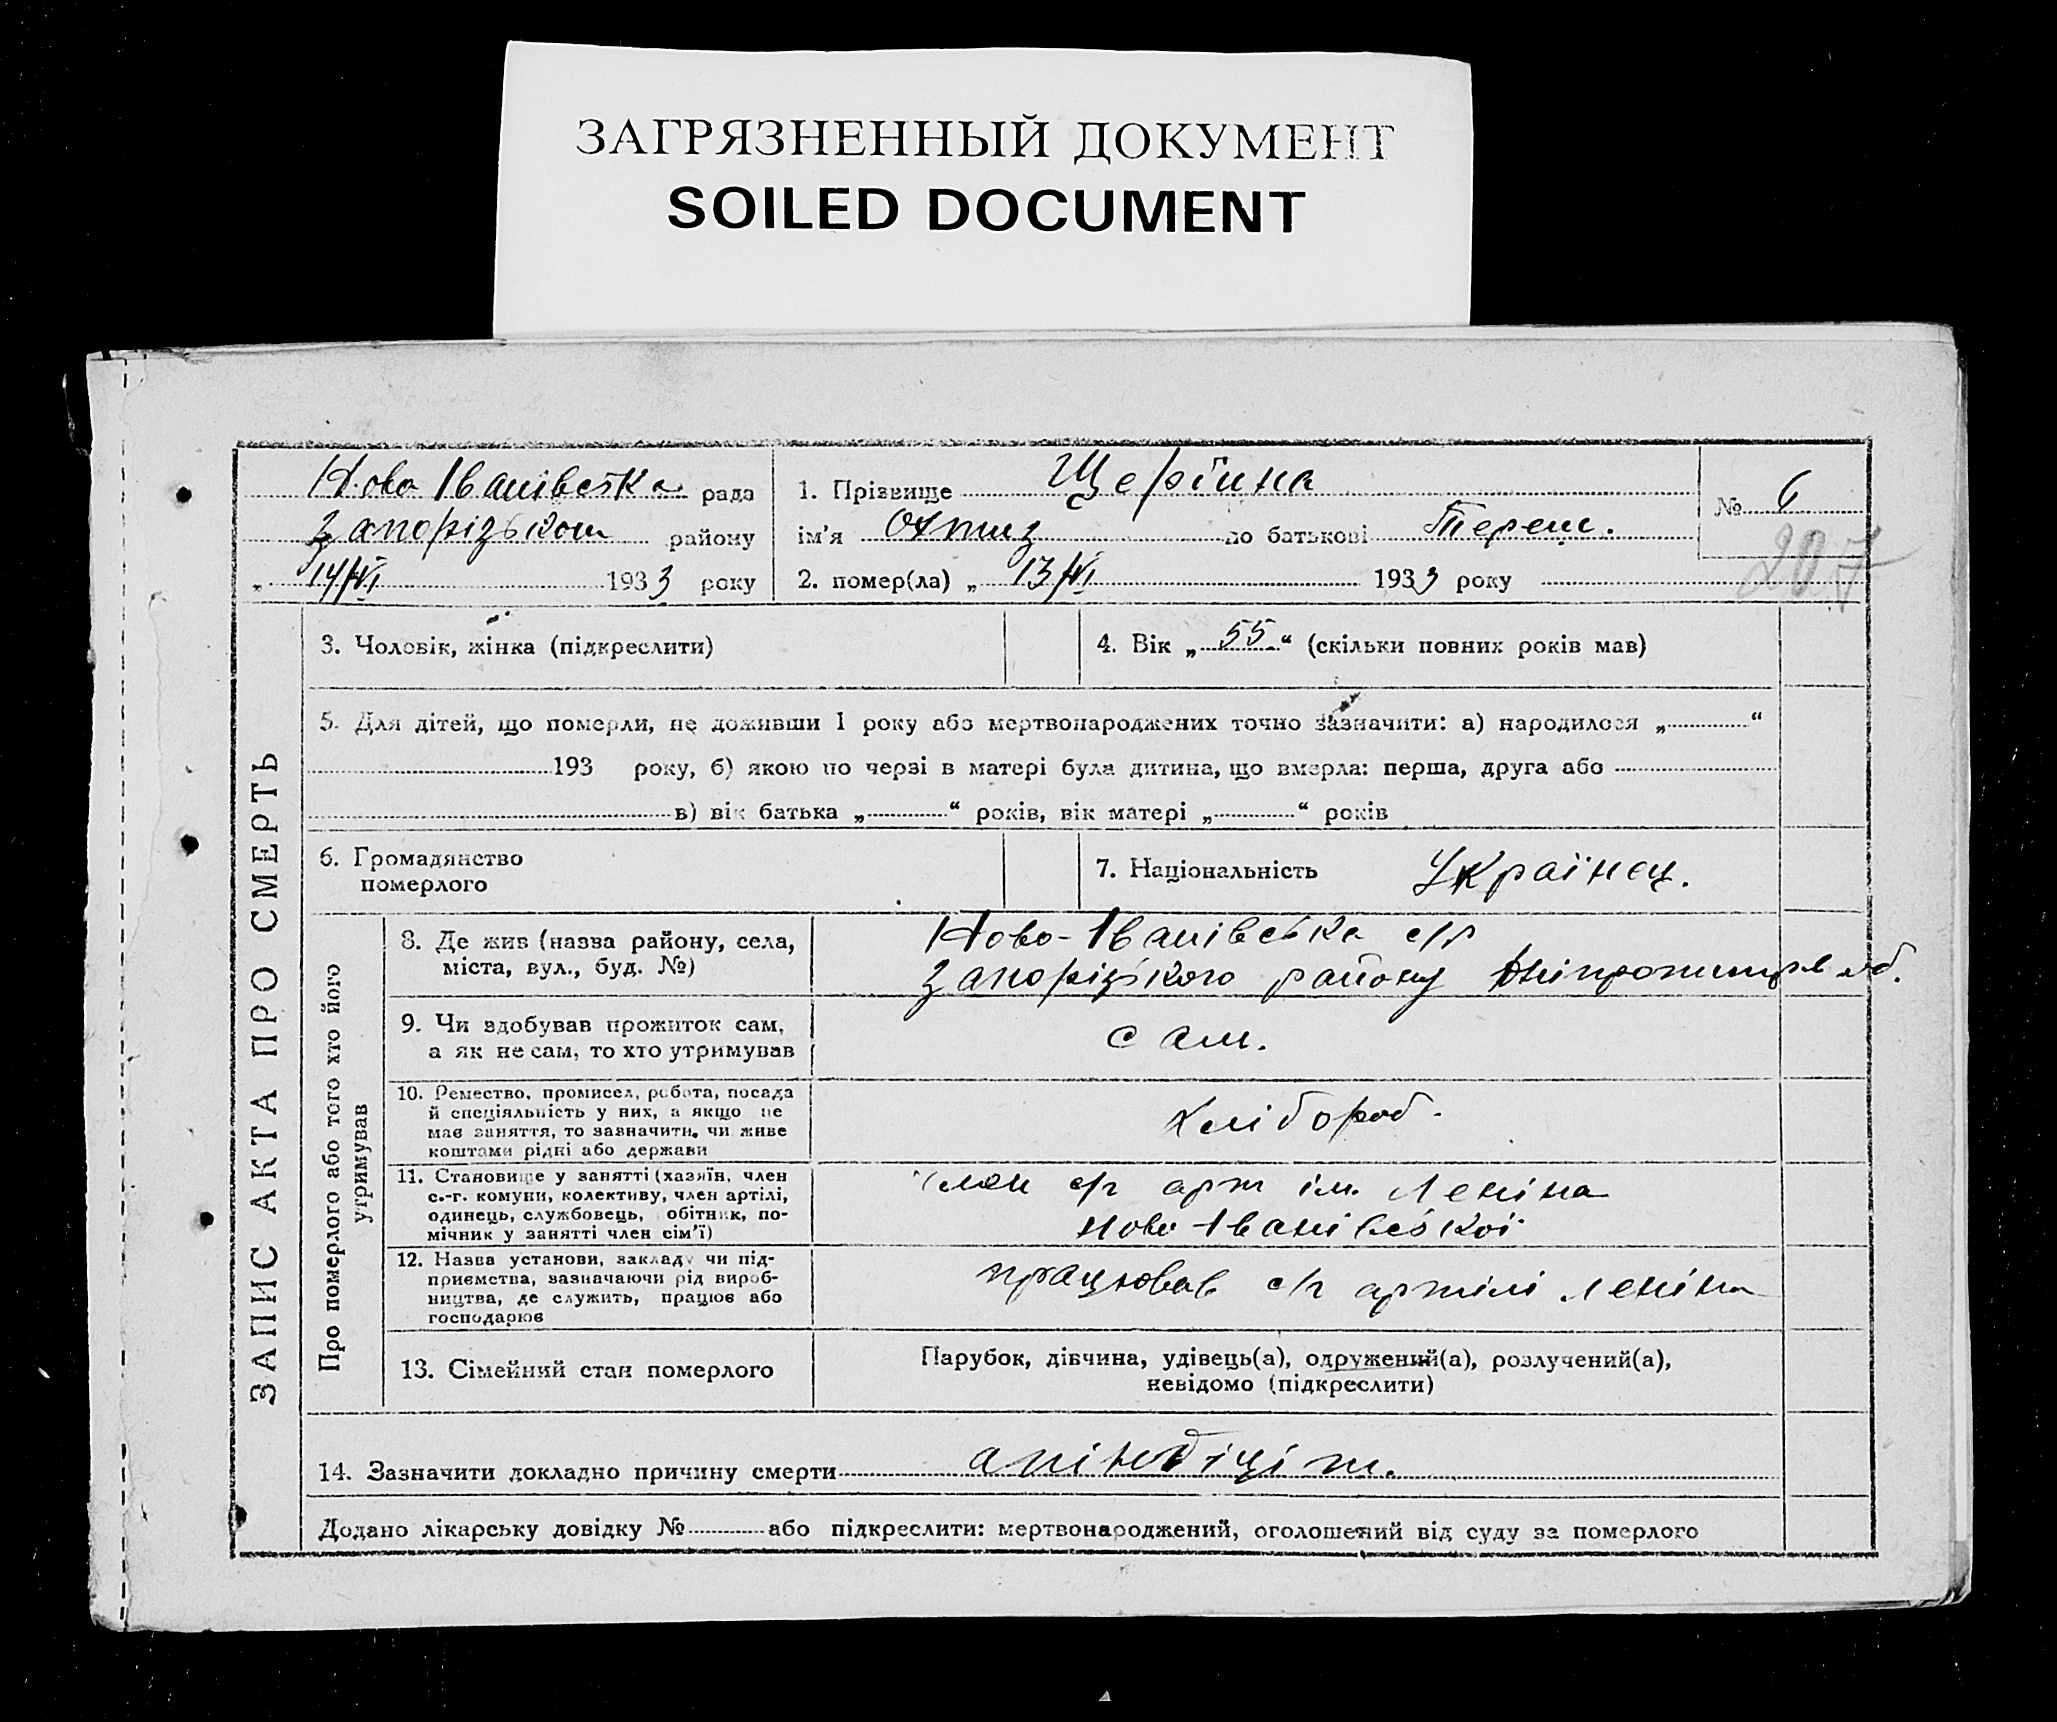 ЗАГРЯЗНЕННЫЙ ДОКУМЕНТ
SOILED DOCUMENT
Ново Іванівська рада
Запорізьком району
„ 14/VI 1933 року
1. Прізвище Щербина
ім'я по батькові Тереш.
2. помер(ла) „ 13/VI 1933 року
№ 6
207
ЗАПИС АКТА ПРО СМЕРТЬ
3. Чоловік, жінка (підкреслити)
4. Вік „ 55 “ (скільки повних років мав)
5. Для дітей, що померли, не доживши 1 року або мертвонароджених точно зазначити: а) народилося „ “
193 року, б) якою по черзі в матері була дитина, що вмерла: перша, друга або
в) вік батька „ “ років, вік матері „ “ років
6. Громадянство
померлого
7. Національність Українец.
Про померлого або того хто його
утримував
8. Де жив (назва району, села,
міста, вул., буд. №)
Ново-Іванівська с/р
Запорізького району об.
9. Чи здобував прожиток сам,
а як не сам, то хто утримував
сам.
10. Ремество, промисел, робота, посада
й спеціяльність у них, а якщо не
має заняття, то зазначити, чи живе
коштами рідні або держави
хлібороб.
11. Становище у занятті (хазяїн, член
с.-г. комуни, колективу, член артілі,
одинець, службовець, обітник, по-
мічник у занятті член сім'ї)
член с/г арт ім. Леніна
Ново Іванівської
12. Назва установи, закладу чи під-
приємства, зазначаючи рід вироб-
ництва, де служить, працює або
господарює
працював с/г артілі Леніна
13. Сімейний стан померлого
Парубок, дівчина, удівець(а), одружений(а), розлучений(а),
невідомо (підкреслити)
14. Зазначити докладно причину смерти
Додано лікарську довідку № або підкреслити: мертвонароджений, оголошений від суду за померлого